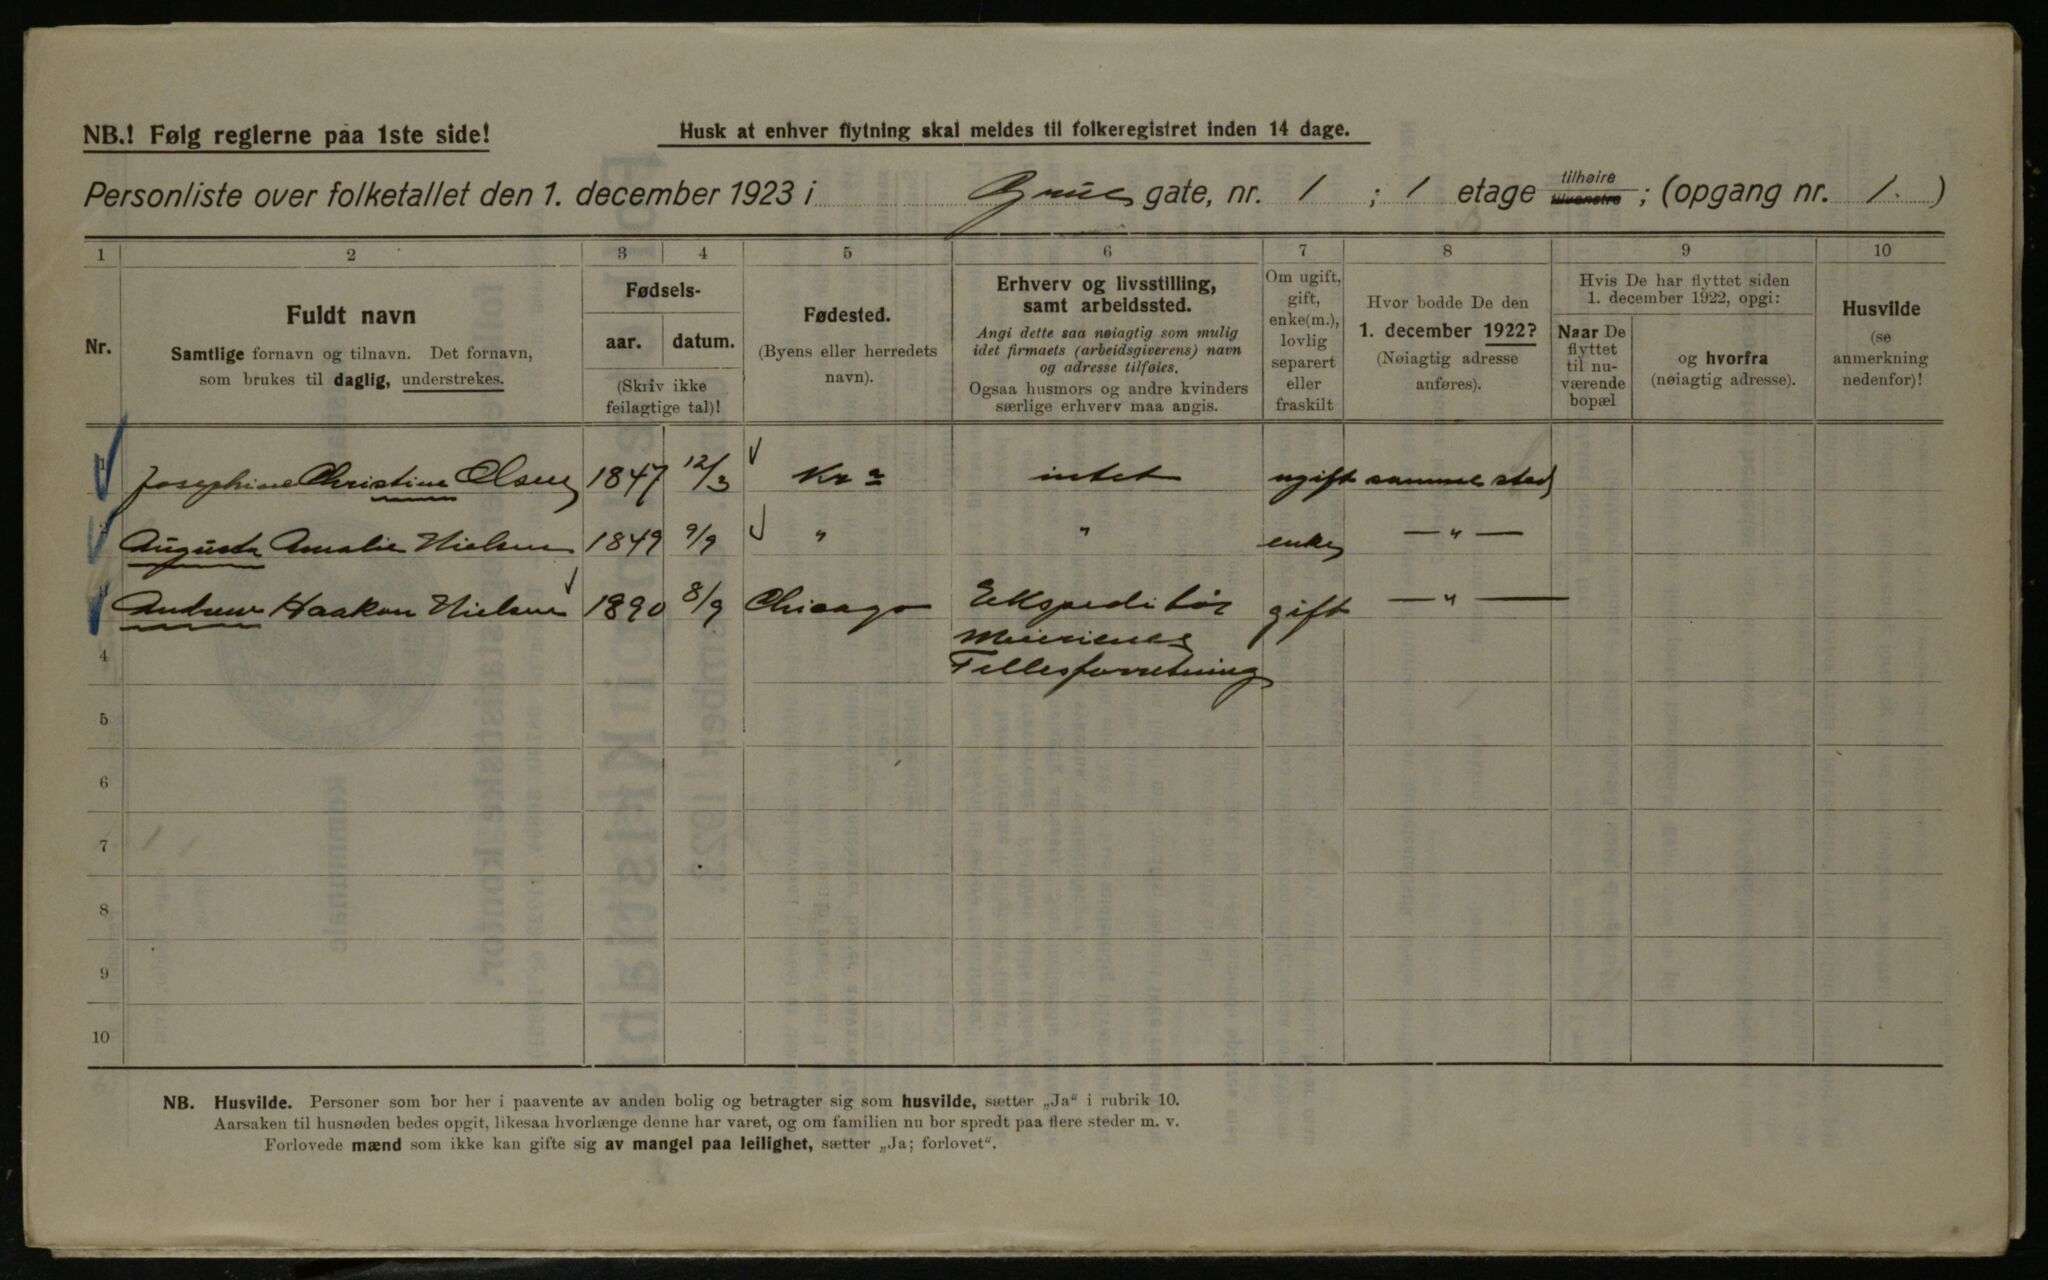 NB.! Følg reglerne paa 1ste side!
Husk at enhver flytning skal meldes til folkeregistret inden 14 dage.
Personliste over folketallet den 1. december 1923 i Grüe gate, nr. 1 ; 1 etage tilhøire tilvenstre ; (opgang nr. 1. )
1 2 3 4 5 6 7 8 9 10
Nr.
Fuldt navn
Samtlige fornavn og tilnavn. Det fornavn,
som brukes til daglig, understrekes.
Fødsels-
aar. datum.
(Skriv ikke
feilagtige tal)!
Fødested.
(Byens eller herredets
navn).
Erhverv og livsstilling,
samt arbeidssted.
Angi dette saa nøiagtig som mulig
idet firmaets (arbeidsgiverens) navn
og adresse tilføies.
Ogsaa husmors og andre kvinders
særlige erhverv maa angis.
Om ugift,
gift,
enke(m.),
lovlig
separert
eller
fraskilt
Hvor bodde De den
1. december 1922?
(Nøiagtig adresse
anføres).
Hvis De har flyttet siden
1. december 1922, opgi:
Naar De
flyttet
til nu-
værende
bopæl
og hvorfra
(nøiagtig adresse).
Husvilde
(se
anmerkning
nedenfor)!
1 Josephine Christine Olsen 1847 12/3 Kra intet ugift samme sted
Augusta Amalie Nielsen 1849 9/9 " " enke — " —
Andrew Haakon Nielsen 1890 8/9 Chicago Ekspeditør gift — " —
Meierienes
4 Fellesforretning
5
6
7
8
9
10
NB. Husvilde. Personer som bor her i paavente av anden bolig og betragter sig som husvilde, sætter „Ja“ i rubrik 10.
Aarsaken til husnøden bedes opgit, likesaa hvorlænge denne har varet, og om familien nu bor spredt paa flere steder m. v.
Forlovede mænd som ikke kan gifte sig av mangel paa leilighet, sætter „Ja; forlovet“.